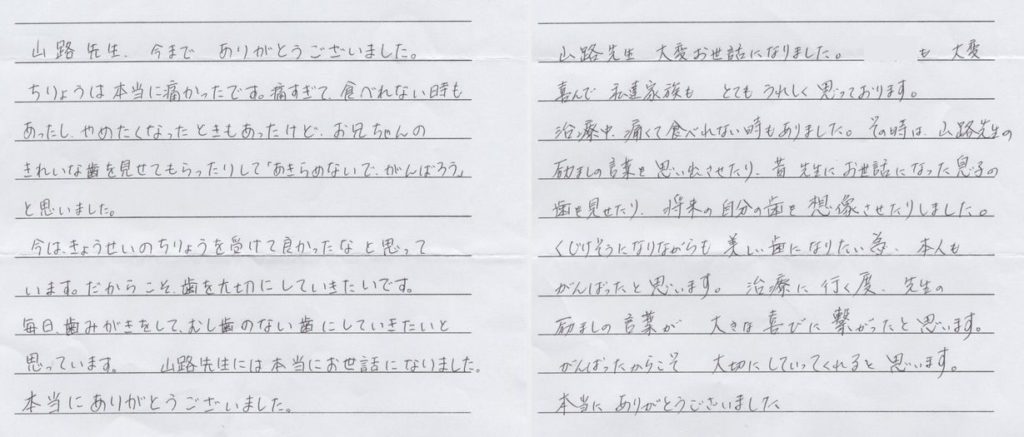 山路先生、今まで ありがとうございました。
ちりょうは本当に痛かったです。痛すぎて、食べれない時も
あったし、やめたくなったときもあったけど、お兄ちゃんの
きれいな歯を見せてもらったりして「あきらめないで、がんばろう」
と思いました。
今は、きょうせいのちりょうを受けて良かったなと思って
います。だからこそ、歯を大切にしていきたいです。
毎日、歯みがきをして、むし歯のない歯にしていきたいと
思っています。 山路先生には本当にお世話になりました。
本当にありがとうございました。
山路先生 大変お世話になりました。 も 大変
喜んで 私達家族も とてもうれしく思っております。
治療中、痛くて食べれない時もありました。その時は、山路先生の
励ましの言葉を思い出させたり、昔 先生にお世話になった息子の
歯を見せたり、将来の自分の歯を想像させたりしました。
くじけそうになりながらも 美しい歯になりたい為、本人も
がんばったと思います。 治療に行く度、先生の
励ましの言葉が 大きな喜びに繋がったと思います。
がんばったからこそ 大切にしていってくれると思います。
本当に ありがとうございました